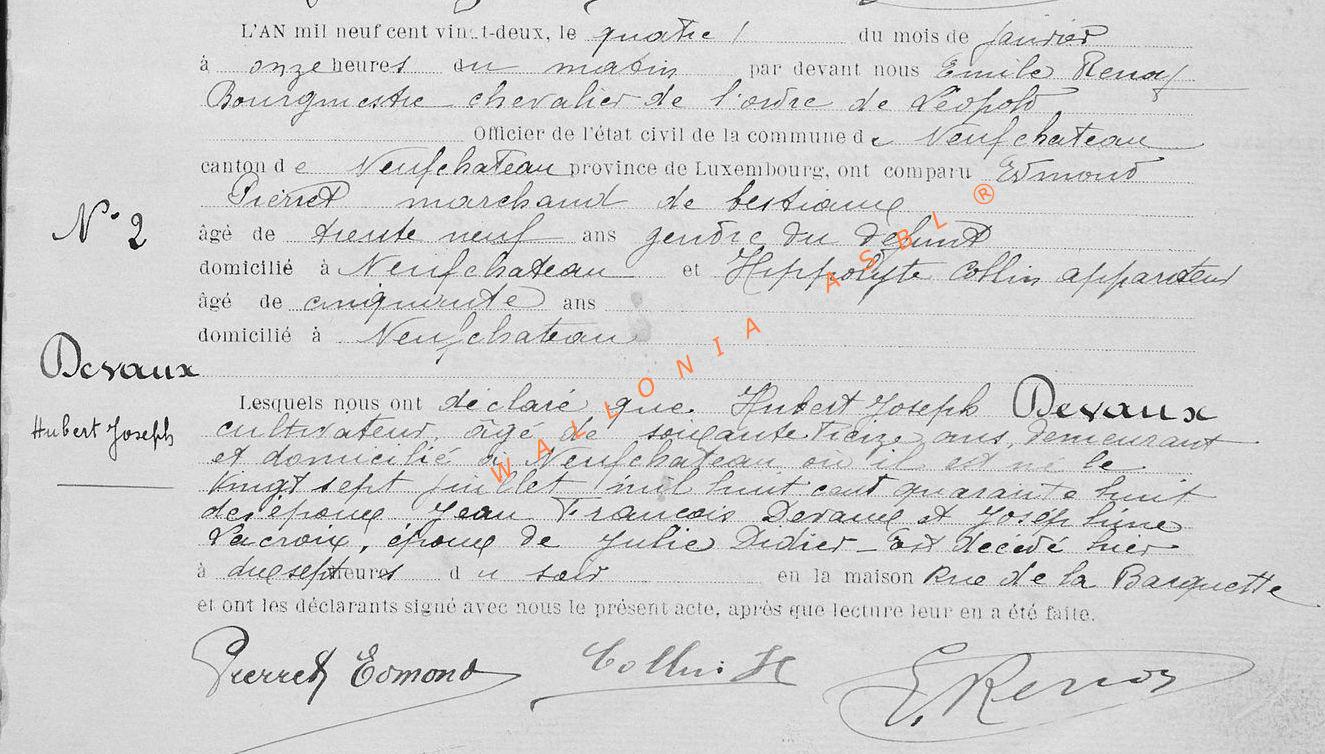 L'AN mil neuf cent vingt-deux, le quatre du mois de Janvier
à onze heures du matin par devant nous Emile Renoy
Bourgmestre chevalier de l'ordre de Léopold
Officier de l'état civil de la commune de Neufchateau
canton de Neufchateau province de Luxembourg, ont comparu Edmond
Pierret marchand de bestiaux
N° 2
âgé de trente neuf ans gendre du defunt
domicilié à Neufchateau et Hippolyte Collin appariteur
âgé de cinquante ans
domicilié à Neufchateau
Devaux
Hubert Joseph
Lesquels nous ont déclaré que Hubert Joseph Devaux
cultivateur, âgé de soixante treize ans, demeurant
et domicilié à Neufchateau où il est né le
vingt sept juillet mil huit cent quarante huit
des époux Jean François Devaux et Joséphine
Lacroix, époux de Julie Didier - Est décédé hier
à dix sept heures du soir en la maison Rue de la Barquette
et ont les déclarants signé avec nous le présent acte, après que lecture leur en a été faite.
Pierret Edmond Collin H E. Renoy
WALLONIA ASBL ®